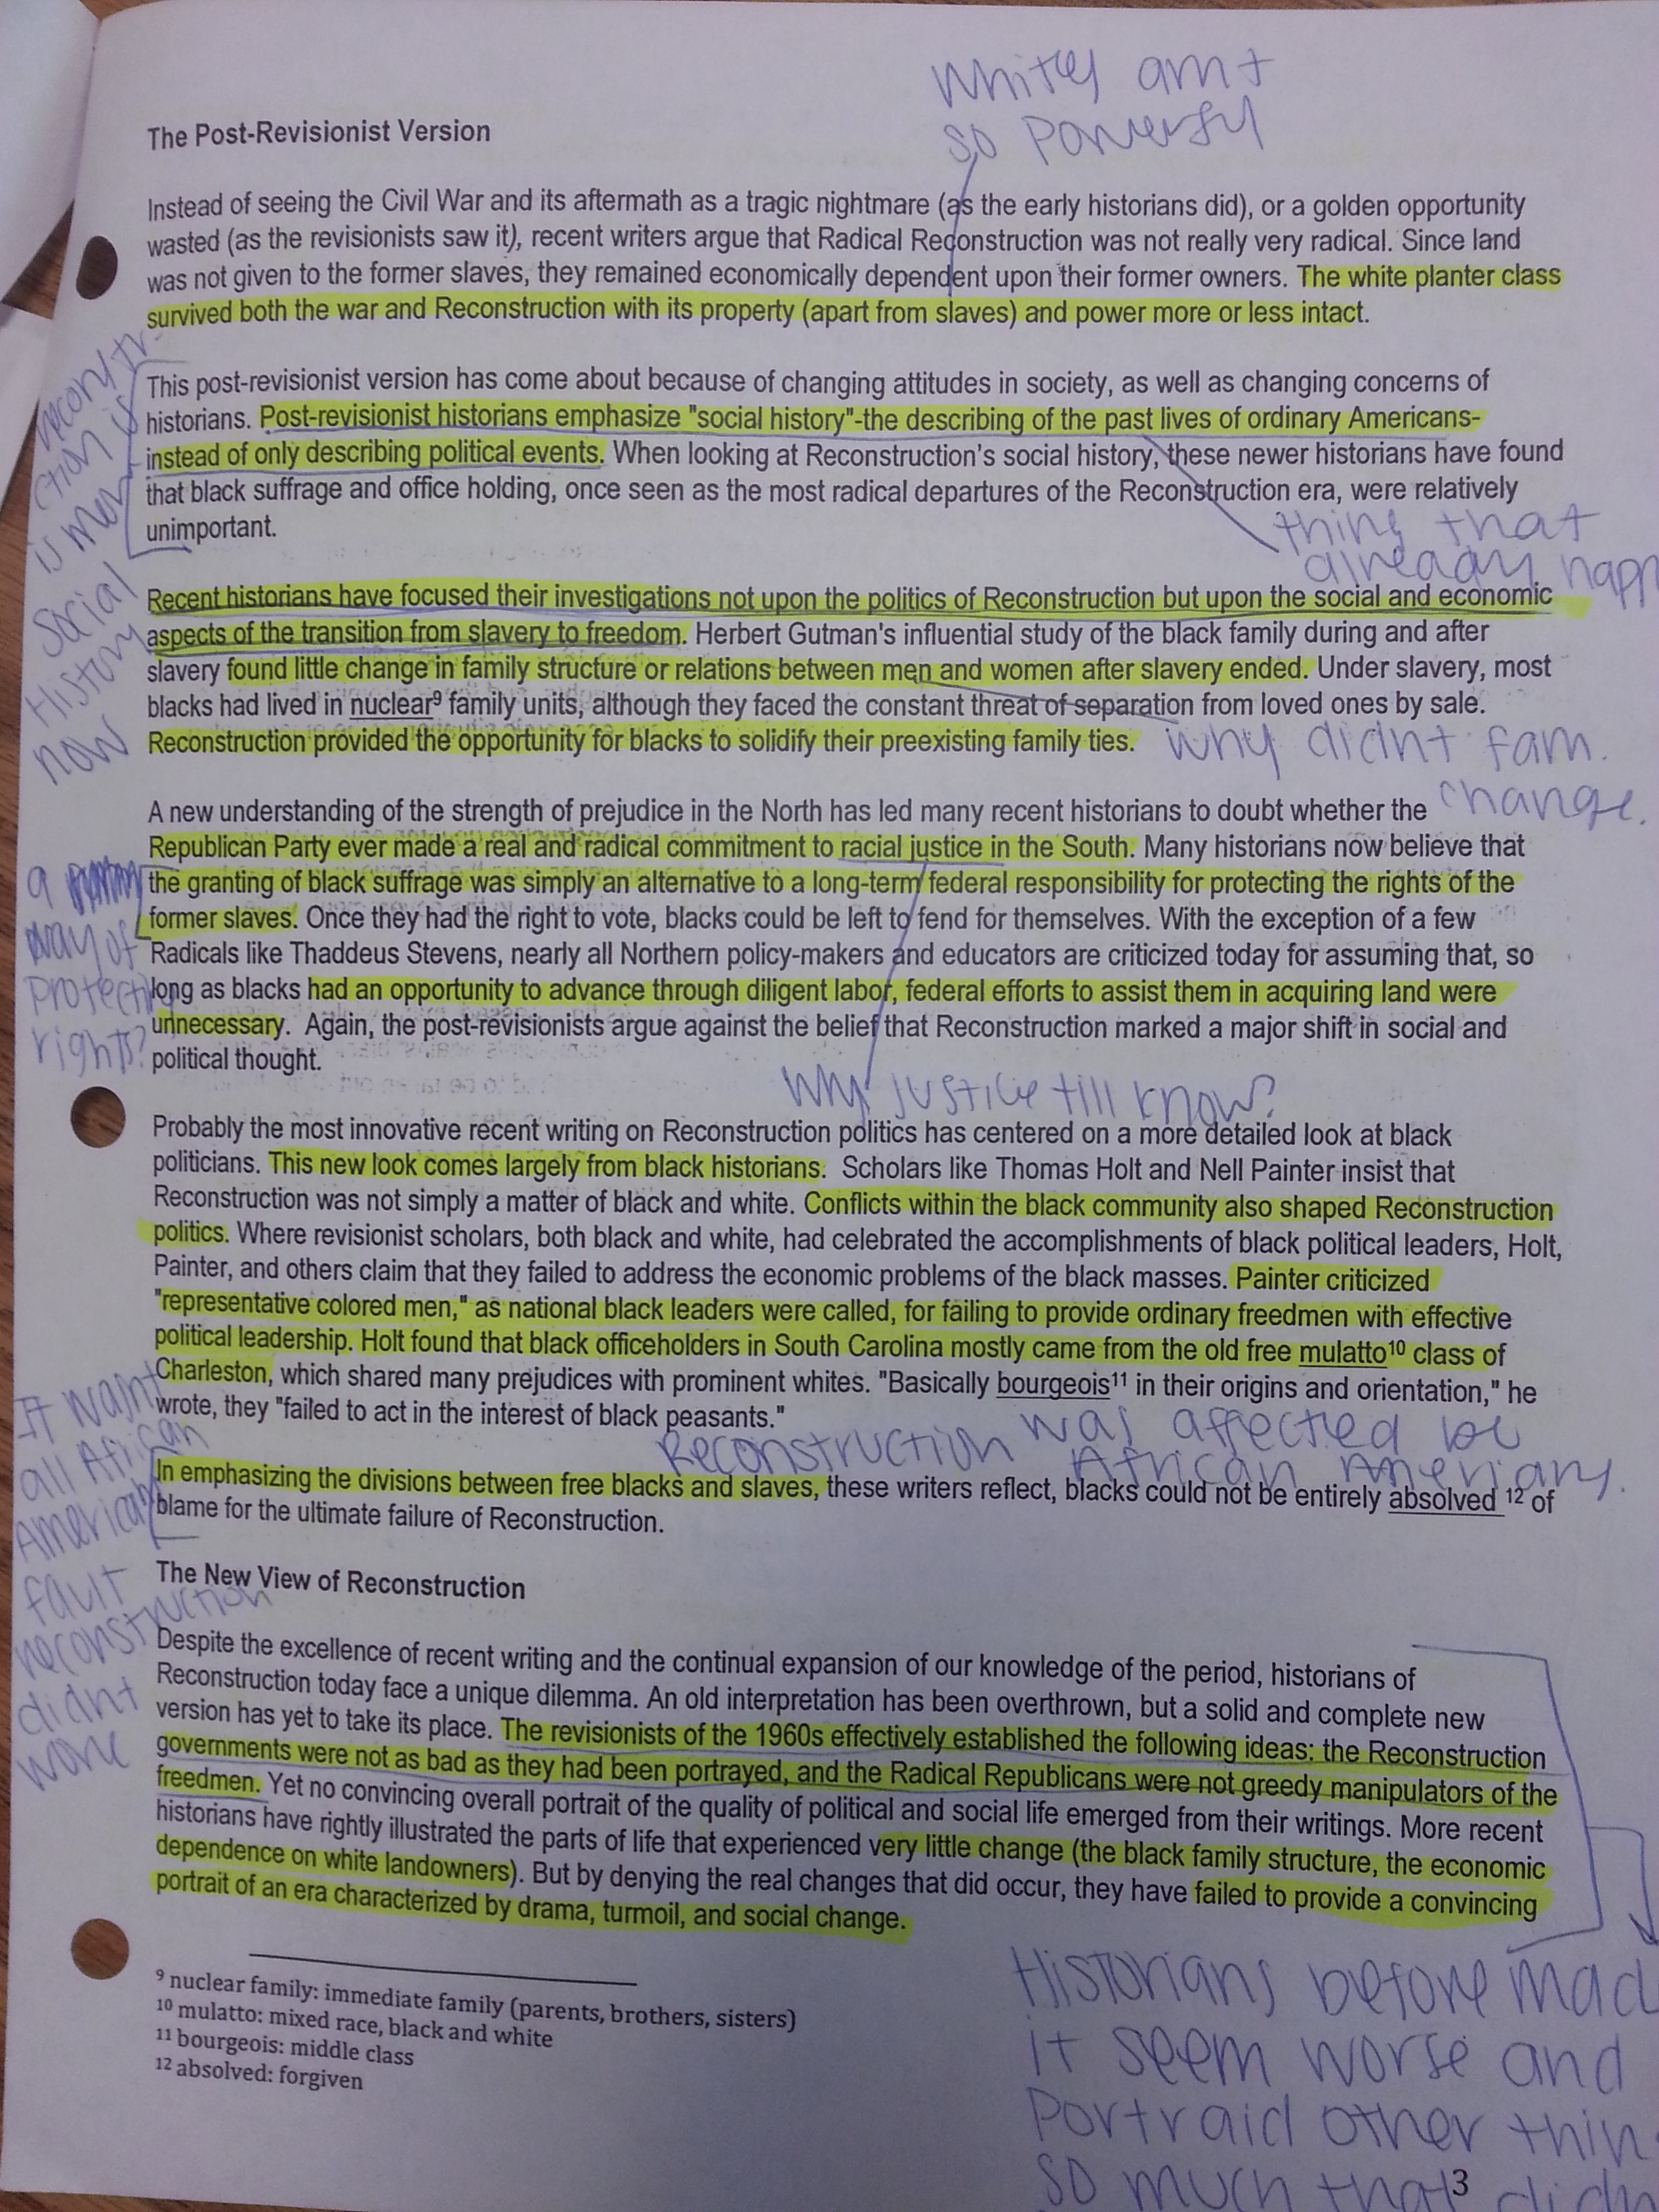 Whites arnt
so powerful
The Post-Revisionist Version
Instead of seeing the Civil War and its aftermath as a tragic nightmare (as the early historians did), or a golden opportunity
wasted (as the revisionists saw it), recent writers argue that Radical Reconstruction was not really very radical. Since land
was not given to the former slaves, they remained economically dependent upon their former owners. The white planter class
survived both the war and Reconstruction with its property (apart from slaves) and power more or less intact.
This post-revisionist version has come about because of changing attitudes in society, as well as changing concerns of
historians. Post-revisionist historians emphasize "social history"-the describing of the past lives of ordinary Americans-
instead of only describing political events. When looking at Reconstruction's social history, these newer historians have found
that black suffrage and office holding, once seen as the most radical departures of the Reconstruction era, were relatively
unimportant.
reconstru
ction is
is more
Social
History
now
thing that
already happ
Recent historians have focused their investigations not upon the politics of Reconstruction but upon the social and economic
aspects of the transition from slavery to freedom. Herbert Gutman's influential study of the black family during and after
slavery found little change in family structure or relations between men and women after slavery ended. Under slavery, most
blacks had lived in nuclear⁹ family units, although they faced the constant threat of separation from loved ones by sale.
Reconstruction provided the opportunity for blacks to solidify their preexisting family ties.
why didnt fam.
change.
A new understanding of the strength of prejudice in the North has led many recent historians to doubt whether the
Republican Party ever made a real and radical commitment to racial justice in the South. Many historians now believe that
the granting of black suffrage was simply an alternative to a long-term federal responsibility for protecting the rights of the
former slaves. Once they had the right to vote, blacks could be left to fend for themselves. With the exception of a few
Radicals like Thaddeus Stevens, nearly all Northern policy-makers and educators are criticized today for assuming that, so
long as blacks had an opportunity to advance through diligent labor, federal efforts to assist them in acquiring land were
unnecessary. Again, the post-revisionists argue against the belief that Reconstruction marked a major shift in social and
political thought.
a
way of
protecting
rights?
Why justice till know?
Probably the most innovative recent writing on Reconstruction politics has centered on a more detailed look at black
politicians. This new look comes largely from black historians. Scholars like Thomas Holt and Nell Painter insist that
Reconstruction was not simply a matter of black and white. Conflicts within the black community also shaped Reconstruction
politics. Where revisionist scholars, both black and white, had celebrated the accomplishments of black political leaders, Holt,
Painter, and others claim that they failed to address the economic problems of the black masses. Painter criticized
"representative colored men," as national black leaders were called, for failing to provide ordinary freedmen with effective
political leadership. Holt found that black officeholders in South Carolina mostly came from the old free mulatto¹⁰ class of
Charleston, which shared many prejudices with prominent whites. "Basically bourgeois¹¹ in their origins and orientation," he
wrote, they "failed to act in the interest of black peasants."
Reconstruction was affected be
African Amerians.
In emphasizing the divisions between free blacks and slaves, these writers reflect, blacks could not be entirely absolved ¹² of
blame for the ultimate failure of Reconstruction.
It wasnt
all African
Americans
fault
reconstruction
didnt
work
The New View of Reconstruction
Despite the excellence of recent writing and the continual expansion of our knowledge of the period, historians of
Reconstruction today face a unique dilemma. An old interpretation has been overthrown, but a solid and complete new
version has yet to take its place. The revisionists of the 1960s effectively established the following ideas: the Reconstruction
governments were not as bad as they had been portrayed, and the Radical Republicans were not greedy manipulators of the
freedmen. Yet no convincing overall portrait of the quality of political and social life emerged from their writings. More recent
historians have rightly illustrated the parts of life that experienced very little change (the black family structure, the economic
dependence on white landowners). But by denying the real changes that did occur, they have failed to provide a convincing
portrait of an era characterized by drama, turmoil, and social change.
⁹ nuclear family: immediate family (parents, brothers, sisters)
¹⁰ mulatto: mixed race, black and white
¹¹ bourgeois: middle class
¹² absolved: forgiven
Historians before mad
it seem worse and
Portraid other thin
so much that didn
3